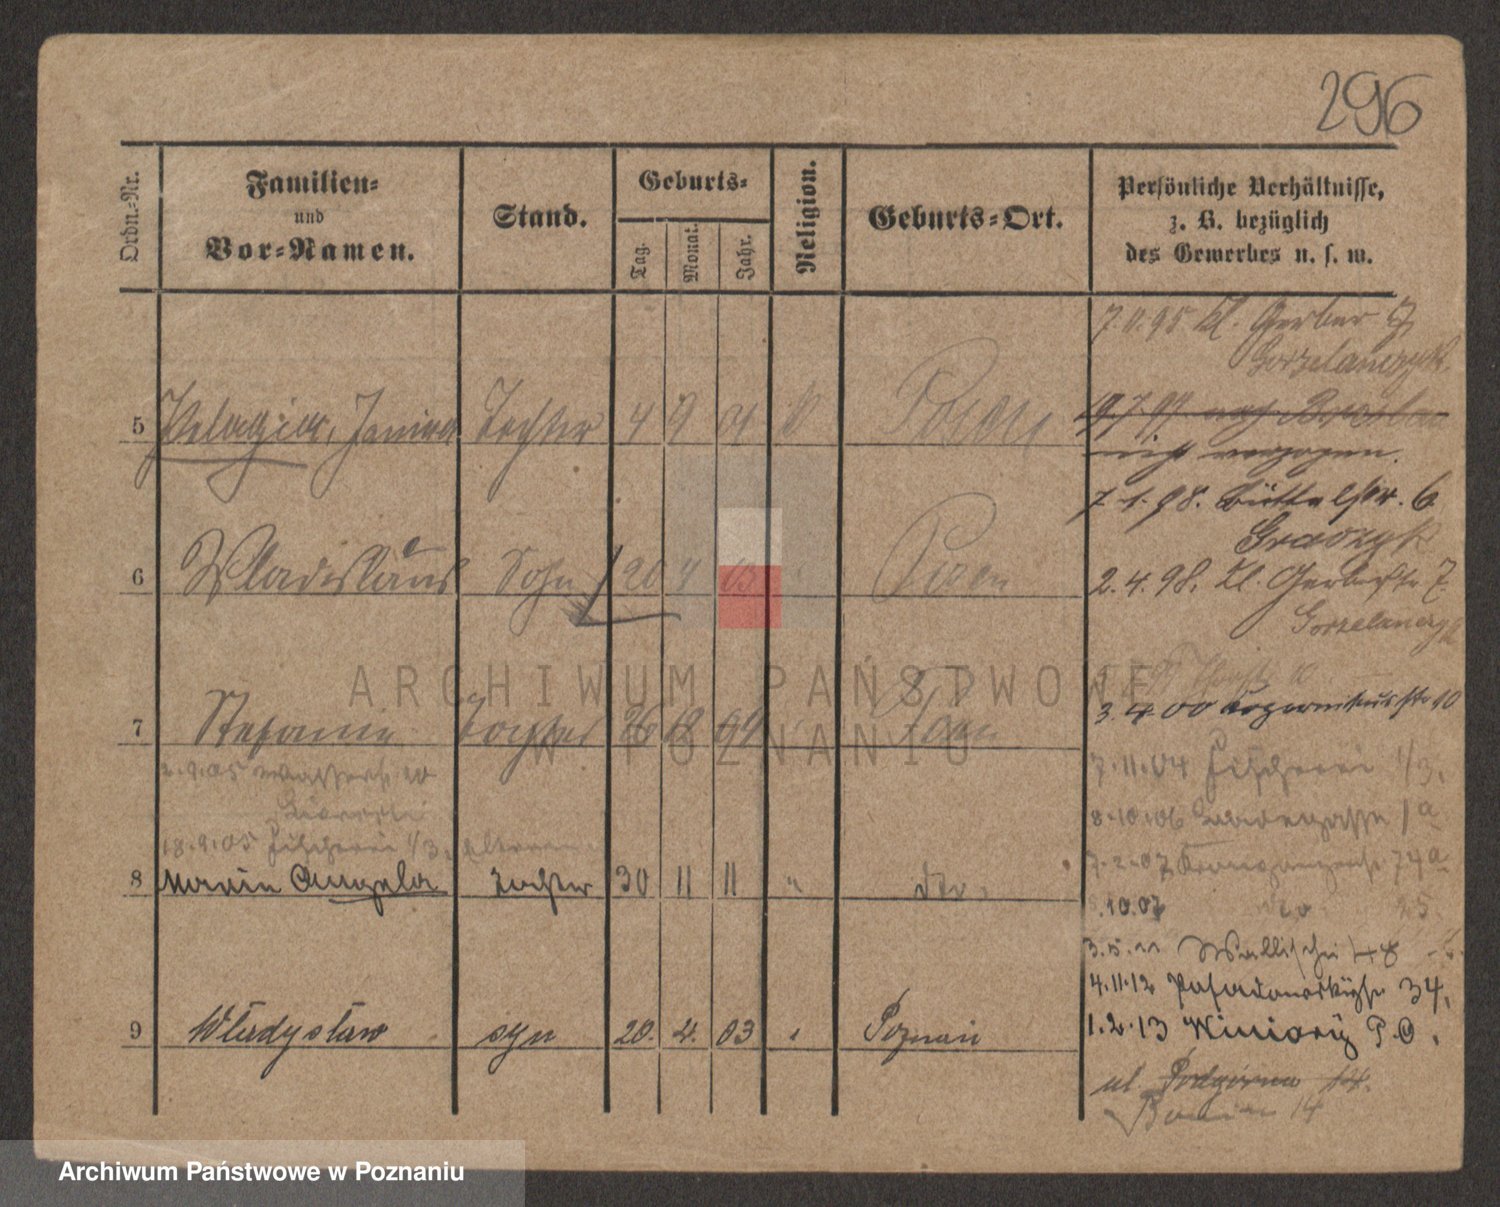 296
Ordn.-Nr.
Familien-
und
Vor-Namen.
Stand.
Geburts-
Tag.
Monat.
Jahr.
Religion.
Geburts-Ort.
Persönliche Verhältnisse,
z. B. bezüglich
des Gewerbes u. s. w.
7.11.95 Kl. Gerber 7
Gorzelanczyk
5 Pelagia, Janina Tochter 4 9 01 k Posen
19.7.97 nach Breslau
nicht verzogen.
7.1.98. Büttelstr. 6
Graszyk
6 Wladislaus Sohn 20 4 03 Posen
2.4.98. Kl. Gerberstr. 7.
Gorzelanczyk
7 Stefanie Tochter 26 12 94 Posen
3.4.00 10
2.9.05 Wasserstr. 20
7.11.04 Fischerei 1/3.
8.10.06 1a
18.9.05 Fischerei 1/3.
7.2.07 74a
8 Maria Angela Tochter 30 11 11 " do.
.10.07 do 25
3.5.11 Wallischei 48
4.11.12 34.
1.2.13 Winiary P.O.
9 Władysław syn 20. 4. 03 Poznań
ul. Podgórna 14.
14
ARCHIWUM PAŃSTWOWE
W POZNANIU
Archiwum Państwowe w Poznaniu